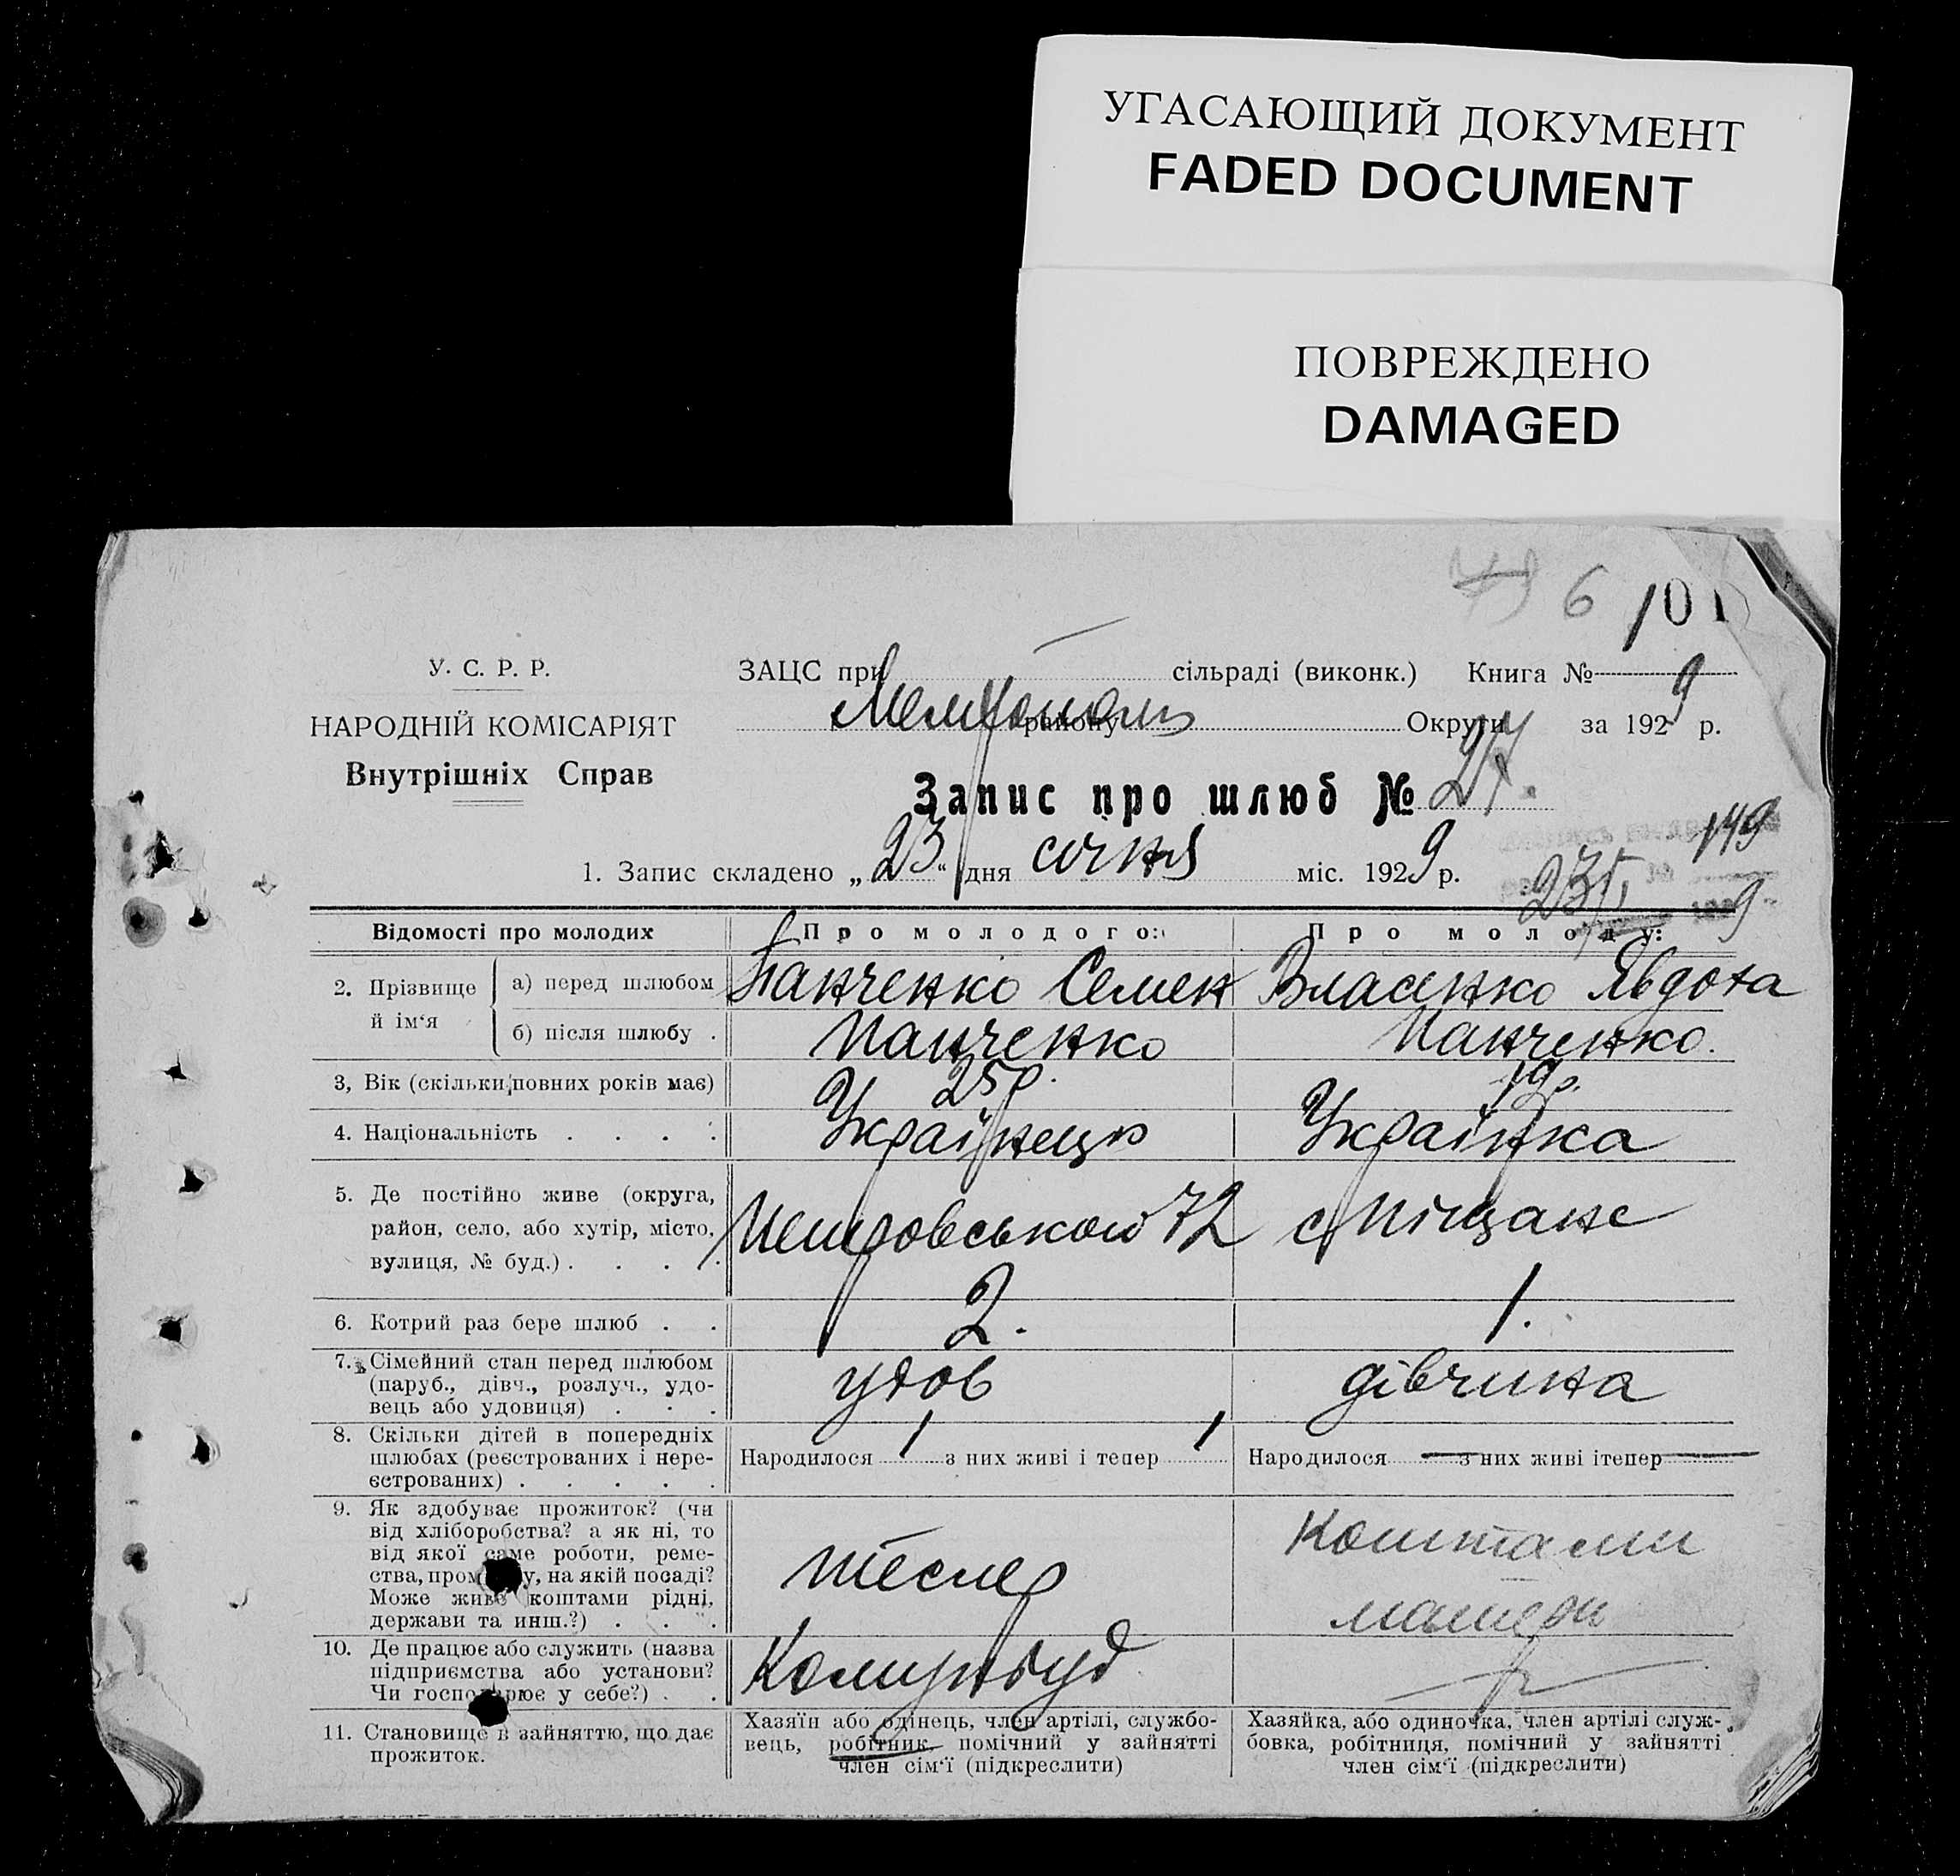 УГАСАЮЩИЙ ДОКУМЕНТ
FADED DOCUMENT
ПОВРЕЖДЕНО
DAMAGED
6 101
У. С. Р. Р.
НАРОДНІЙ КОМІСАРІЯТ
Внутрішніх Справ
ЗАЦС при сільраді (виконк.) Книга №
Мелітополь району Округи за 1929 р.
Запис про шлюб № 27.
149
1. Запис складено „23“ дня січня міс. 1929 р.
Відомості про молодих
Про молодого:
Про молоду:
2. Прізвище й ім‘я
а) перед шлюбом Панченко Семен Власенко Явдоха
б) після шлюбу . Панченко Панченко.
3, Вік (скільки повних років має) 25 р. 19 р.
4. Національність . . . . Українець Українка
5. Де постійно живе (округа,
район, село, або хутір, місто,
вулиця, № буд.) . . . .
Петровського 72 с. Піщане
6. Котрий раз бере шлюб . . 2. 1.
7. Сімейний стан перед шлюбом
(паруб., дівч., розлуч., удо-
вець або удовиця) . . .
удов дівчина
8. Скільки дітей в попередніх
шлюбах (реєстрованих і нере-
єстрованих) . . . . .
Народилося 1 з них живі і тепер 1
Народилося — з них живі ітепер —
9. Як здобуває прожиток? (чи
від хліборобства? а як ні, то
від якої саме роботи, реме-
ства, пром у, на якій посаді?
Може живе коштами рідні,
держави та инш.?) . . .
тесляр
Коштами
матери
10. Де працює або служить (назва
підприємства або установи?
Чи господарює у себе?) . .
Комунбуд
11. Становище в зайняттю, що дає
прожиток.
Хазяїн або одінець, член артілі, службо-
вець, робітник, помічний у зайнятті
член сім‘ї (підкреслити)
Хазяйка, або одиночка, член артілі служ-
бовка, робітниця, помічний у зайнятті
член сім‘ї (підкреслити)